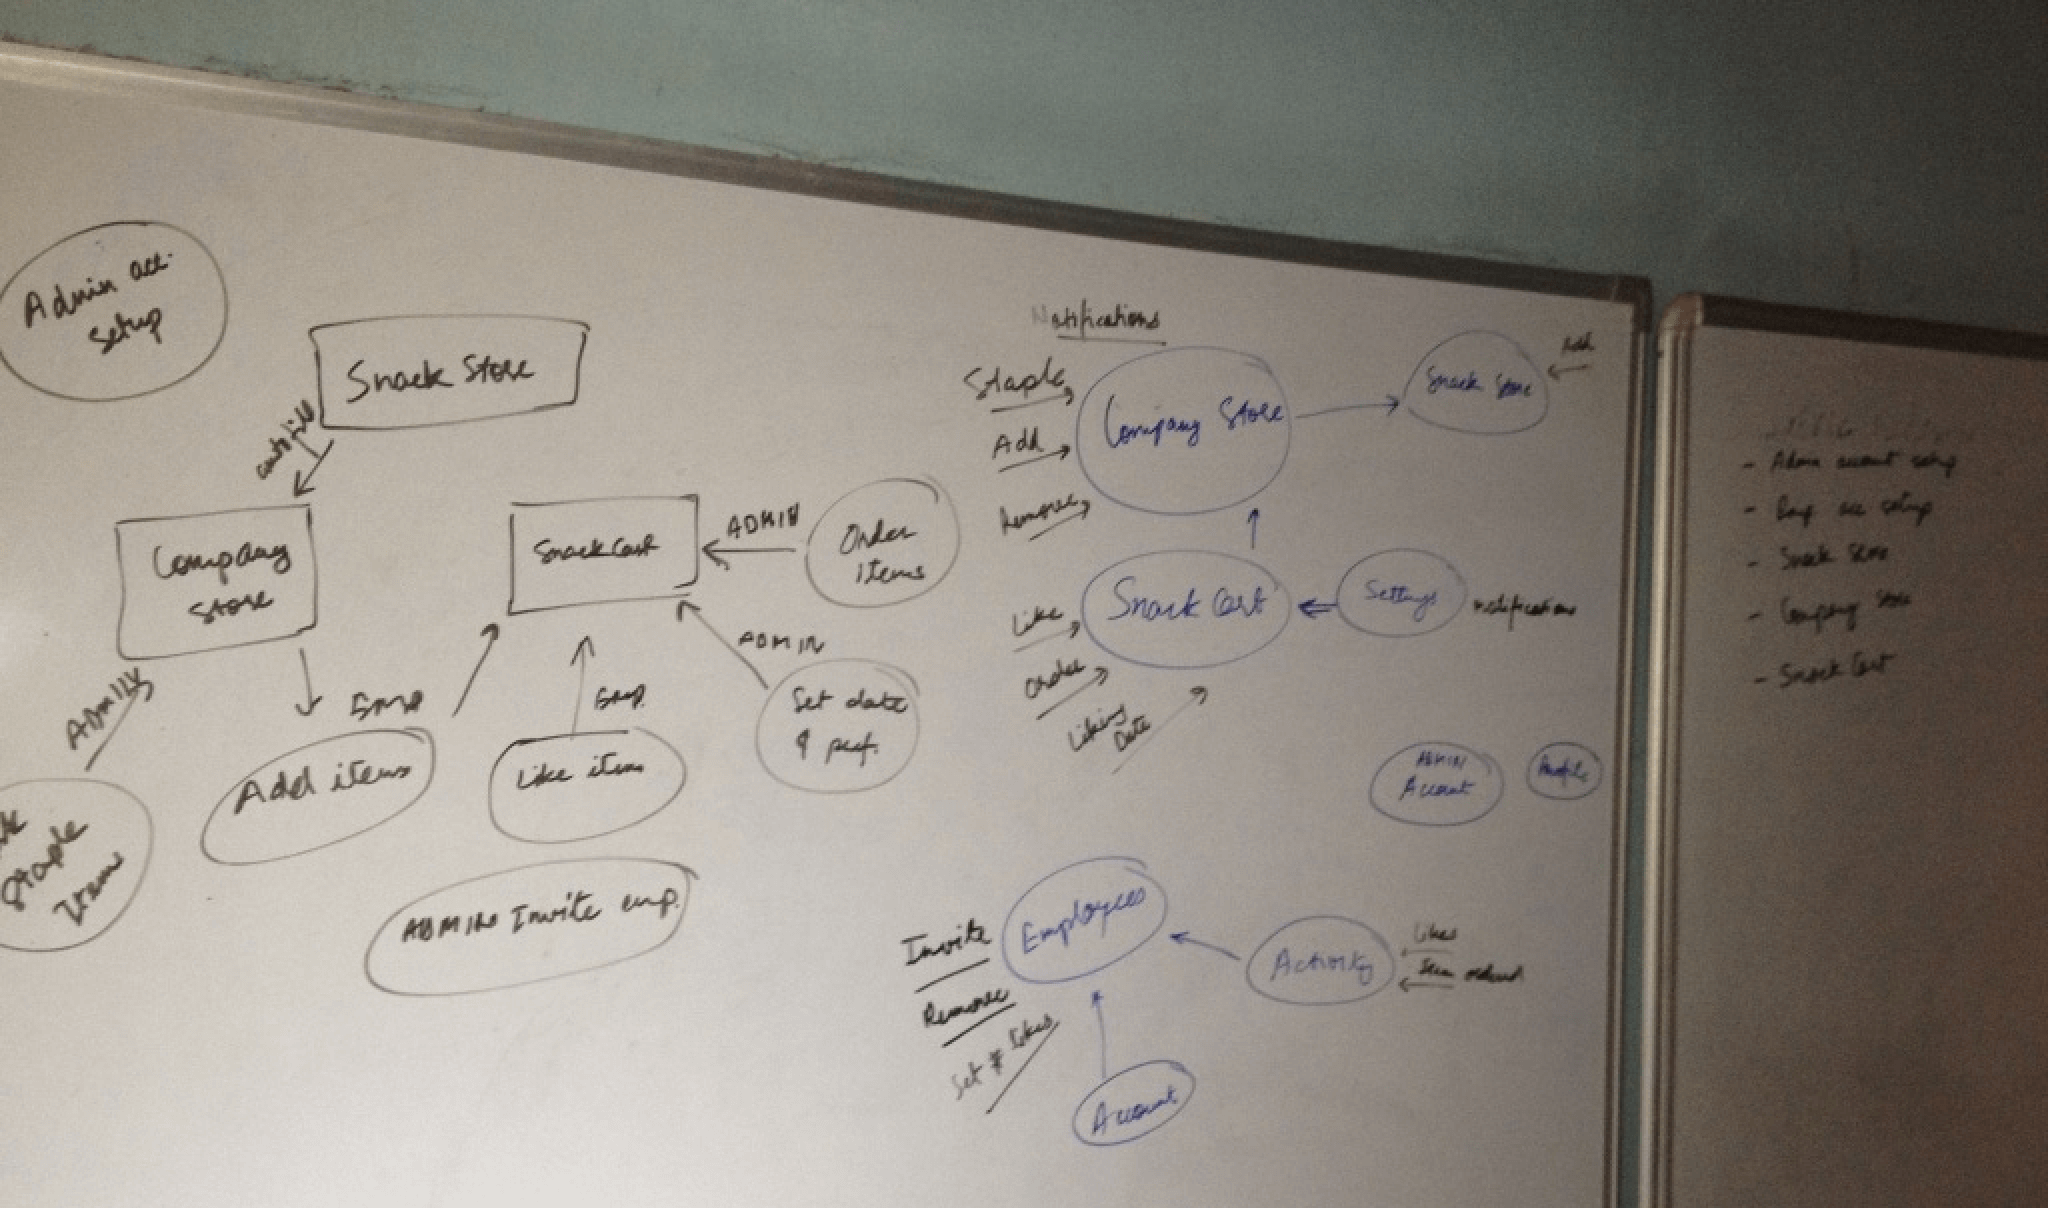 Admin acc.
setup
Snack Store
autofill
Company
Store
ADMIN
Staple
Items
EMP
Add items
Snack Cart
ADMIN
Order
items
ADMIN
Set date
& pref.
Emp.
Like item
ADMIN Invite emp.
Notifications
Staple
Add
Remove
Company Store
Snack Store
Add
Snack Cart
Like
Order
Liking
Date
Settings
notifications
ADMIN
Account
Profile
Employees
Invite
Remove
Set # likes
Activity
Likes
Item ordered
Account
- Admin account setup
- Emp acc setup
- Snack Store
- Company Store
- Snack Cart